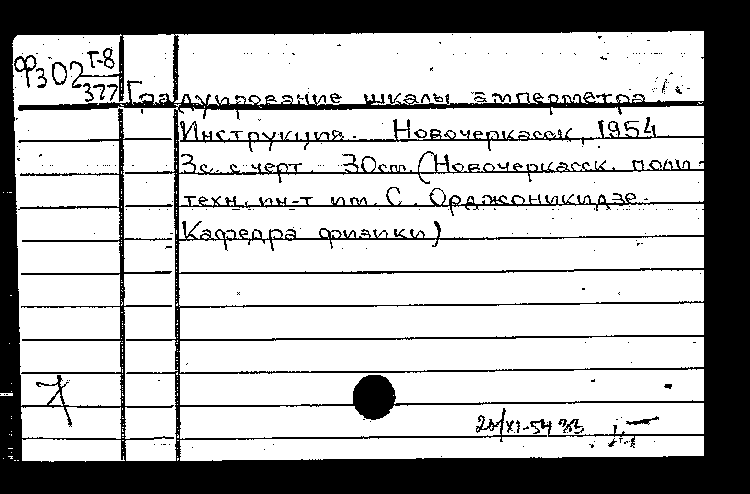 Ф302 Г-8
377
Градуирование шкалы амперметра
Инструкция. Новочеркасск, 1954
3с. с черт. 30см. (Новочеркасск. поли-
техн. ин-т им. С. Орджоникидзе.
Кафедра физики)